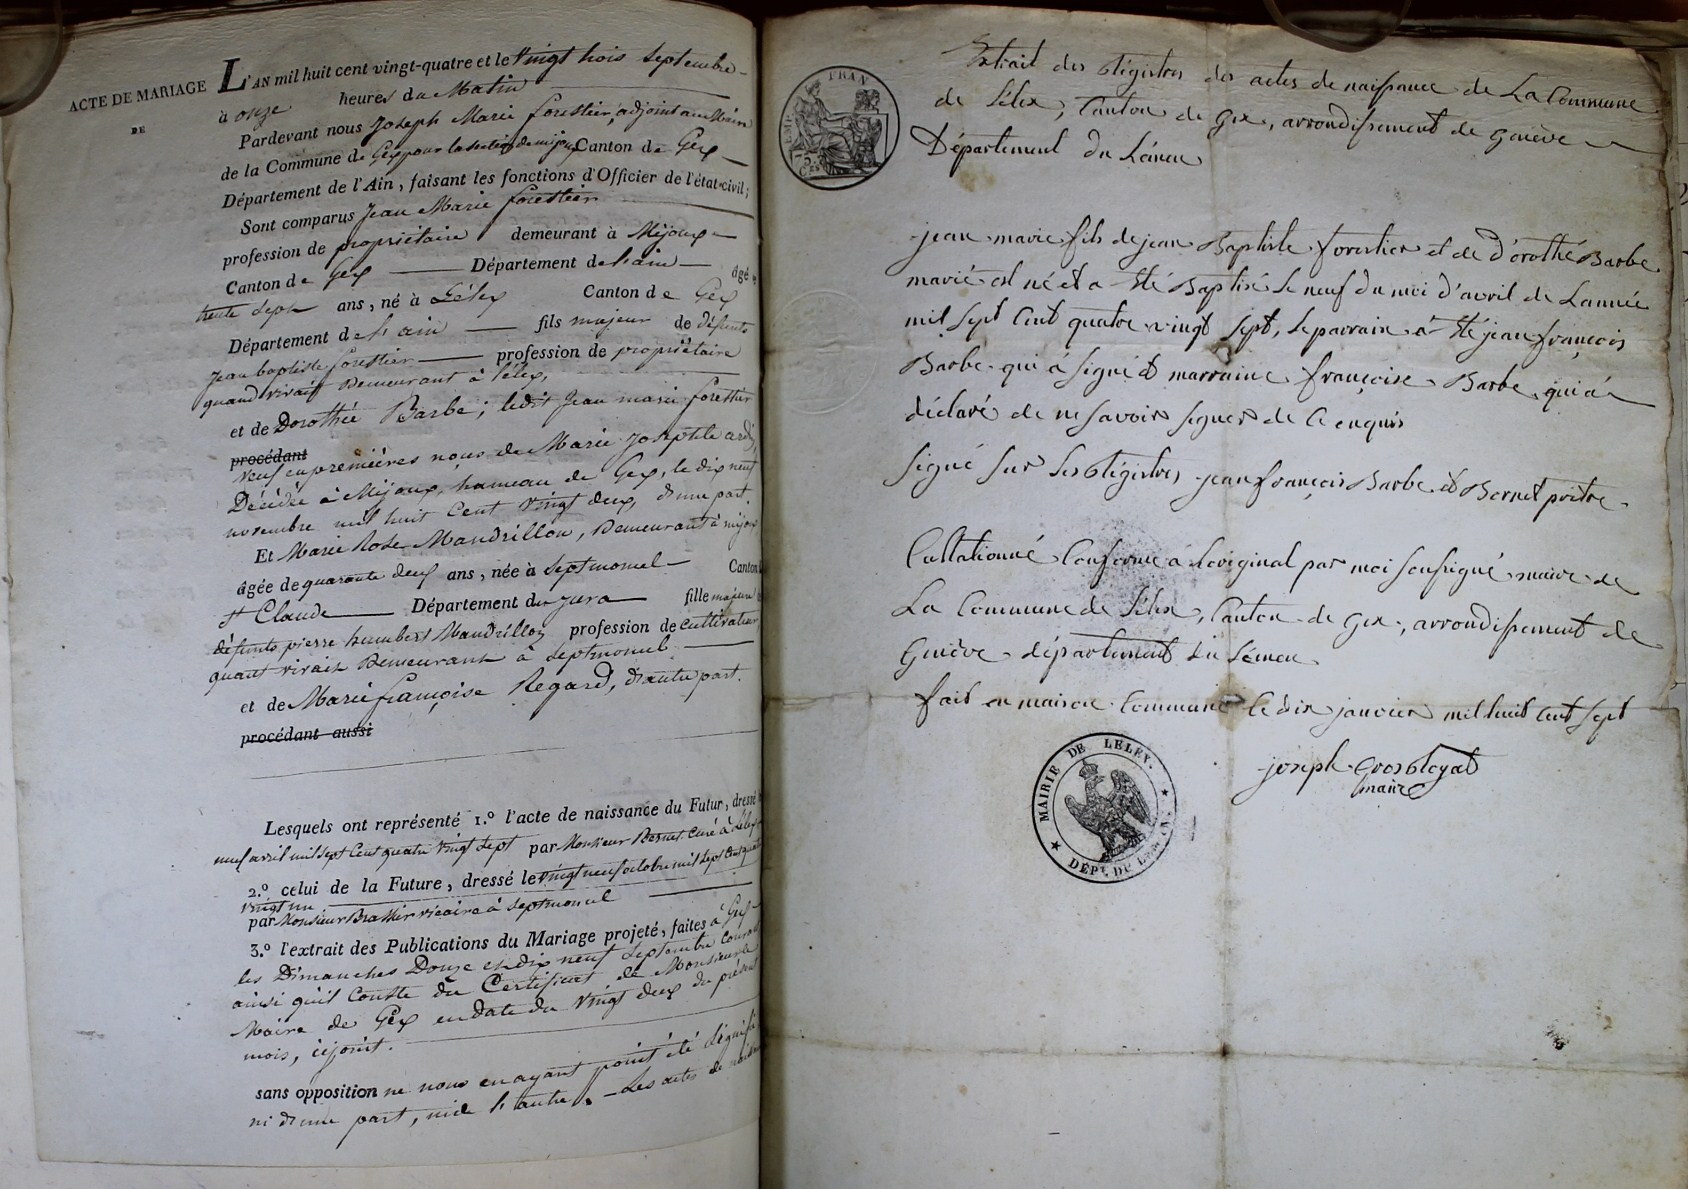 ACTE DE MARIAGE
DE
L'AN mil huit cent vingt-quatre et le Vingt trois Septembre
à onze heures du Matin
Pardevant nous Joseph Marie forestier, adjoint au Maire
de la Commune de Gex pour la section de mijoux Canton de Gex
Département de l'Ain, faisant les fonctions d'Officier de l'état-civil;
Sont comparus Jean Marie forestier
profession de propriétaire demeurant à Mijoux
Canton de Gex Département de l'ain âgé
trente Sept ans, né à Lélex Canton de Gex
Département de l'ain fils majeur de défunts
Jean baptiste forestier profession de propriétaire
quand vivait Demeurant à lélex,
et de Dorothée Barbe; ledit Jean marie forestier
procédant
veuf en premières noces de Marie Josephte
Décédée à Mijoux, hameau de Gex, le dix neuf
novembre mil huit Cent vingt deux, d'une part.
Et Marie Rose Mandrillon, Demeurant à mijoux
âgée de quarante deux ans, née à Septmoncel Canton
St Claude Département du jura fille majeure
défunts pierre humbert Mandrillon profession de cultivateur,
quant vivait Demeurant à Septmoncel
et de Marie françoise Regard, d'autre part.
procédant aussi
Lesquels ont représenté 1.º l'acte de naissance du Futur, dressé
neuf avril mil sept Cent quatre Vingt Sept par Monsieur Bernet Curé à Lélex
2.º celui de la Future, dressé le vingt neuf octobre mil Sept Cent quatre
vingt un
par Monsieur vicaire à Septmoncel
3.º l'extrait des Publications du Mariage projeté, faites à Gex
les Dimanches Douze et dix neuf Septembre Courant
ainsi qu'il Conste du Certificat de Monsieur le
Maire de Gex en date du vingt deux du présent
mois, cijoint.
sans opposition ne nous en ayant point été Signifié
ni d'une part, ni de l'autre. Les actes de
EMP. FRAN
75
Ces
Extrait des Régistres des actes de naissance de La Commune
de Lélex, Canton de Gex, arrondissement de Genève
Département du Léman
jean marie fils de jean Baptiste forestier et de d'orothé Barbe
mariés est né et a été Baptisé le neuf du moi d'avril de L'année
mil Sept Cent quatre vingt Sept, Le parrain à été jean françois
Barbe qui à Signé et marraine françoise Barbe qui à
déclaré de ne savoir Signer de Ce enquis
Signé Sur Les Régistres jean françois Barbe et Bernet prêtre
Collationné Conforme à L'original par moi Sousigné maire de
La Commune de Lélex, Canton de Gex, arrondissement de
Genève département du Léman
fait en maison Commune le dix janvier mil huit Cent Sept
joseph Grosroyat
maire
MAIRIE DE LELEX.
DÉPT. DU LÉMAN